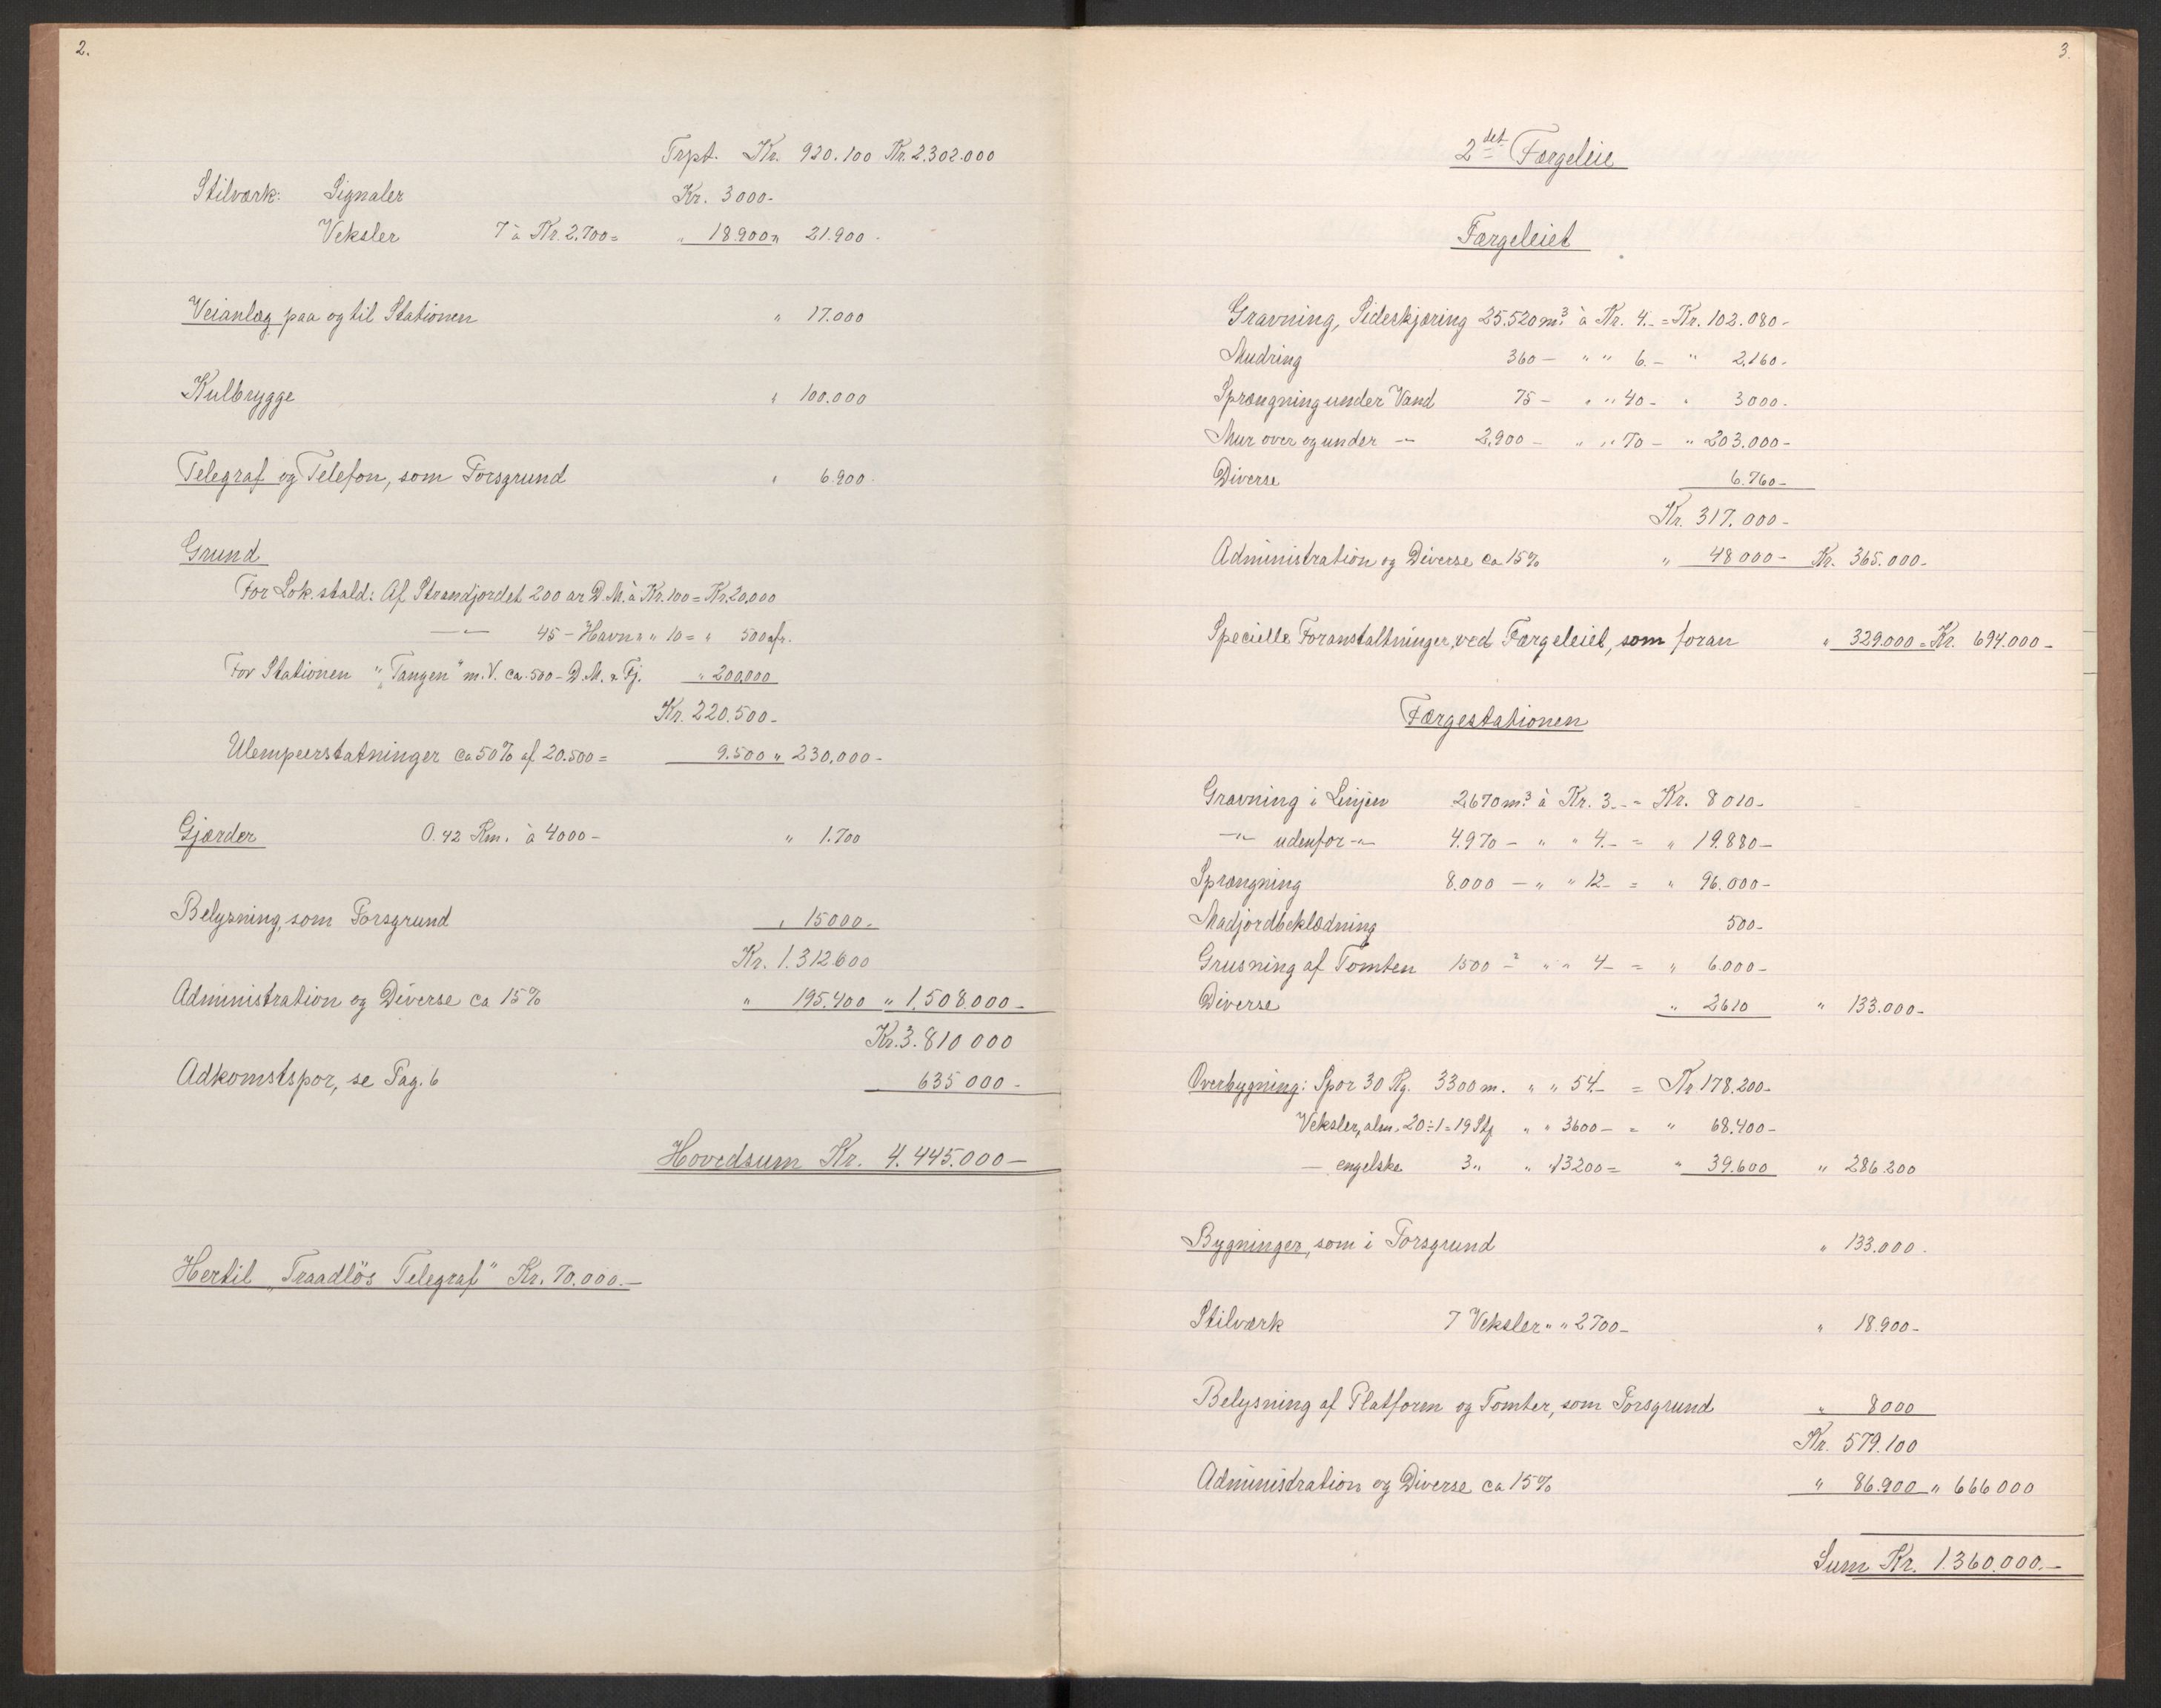 2.
Trpt. Kr. 920.100 Kr. 2.302.000
Stilværk: Signaler Kr. 3000-
Veksler 7 à Kr. 2.700= " 18.900 " 21.900-
Veianlæg paa og til Stationen " 17.000
Kulbrygge " 100.000
Telegraf og Telefon, som Porsgrund " 6.900-
Grund
For Lok.stald: Af Strandjordet 200 ar D.M. à Kr. 100 = Kr. 20,000
—"— 45 - Havn " " 10 = " 500 afr.
For Stationen "Tangen" m.V. ca. 500 - D.M. & Fj. " 200,000
Kr. 220.500-
Ulempeerstatninger ca 50% af 20.500 = 9.500 " 230.000-
Gjærder 0.42 Km. à 4000- " 1.700
Belysning, som Porsgrund " 15000-
Kr. 1.312.600
Administration og Diverse ca 15% " 195.400 " 1.508.000-
Kr. 3.810 000
Adkomstspor, se Pag. 6 635 000-
Hovedsum Kr. 4.445.000—
Hertil "Traadlös Telegraf" Kr. 70.000.—
3.
2det Færgeleie
Færgeleiet
Gravning, Sideskjæring 25.520 m³ à Kr. 4.- = Kr. 102.080-
Mudring 360 - " " 6.- " 2.160-
Sprængning under Vand 75 - " " 40 - " 3000-
Mur over og under -"- 2.900 - " " 70 - " 203.000-
Diverse 6.760-
Kr. 317.000-
Administration og Diverse ca 15% " 48 000- Kr. 365.000-
Specielle Foranstaltninger ved Færgeleiet, som foran " 329.000 = Kr. 694.000-
Færgestationen
Gravning i Linjen 2.670 m³ à Kr. 3.- = Kr. 8 010-
-"- udenfor -"- 4.970 - " " 4.- = " 19.880-
Sprængning 8.000 - " " 12- = " 96.000-
Madjordbeklædning 500-
Grusning af Tomten 1500 -² " " 4- = " 6.000-
Diverse " 2610 " 133.000-
Overbygning: Spor 30 Kg. 3300 m. " " 54.- = Kr. 178.200-
Veksler, alm. 20÷1=19 Stk " " 3600- = " 68.400-
— engelske 3 " " " 13200 = " 39.600 " 286.200
Bygninger, som i Porsgrund " 133.000.
Stilværk 7 Veksler " " 2700- " 18.900-
Belysning af Platform og Tomter, som Porsgrund " 8000
Kr. 579.100
Administration og Diverse ca 15% " 86.900 " 666 000
Sum Kr. 1.360.000.—